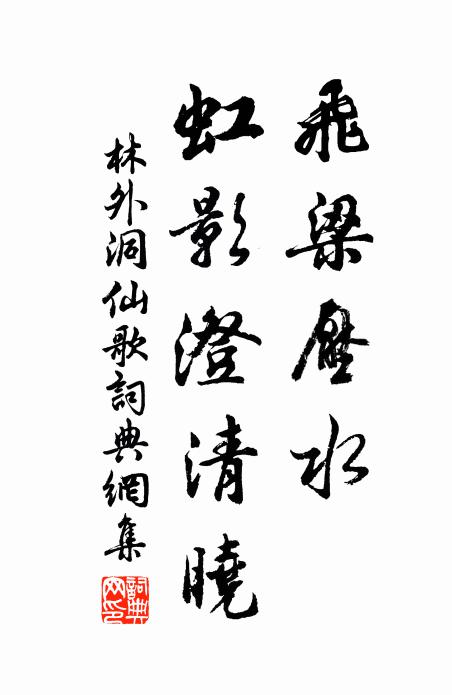 飛梁壓水
虹影澄清曉
林外洞仙歌詞典網集
詞典網印